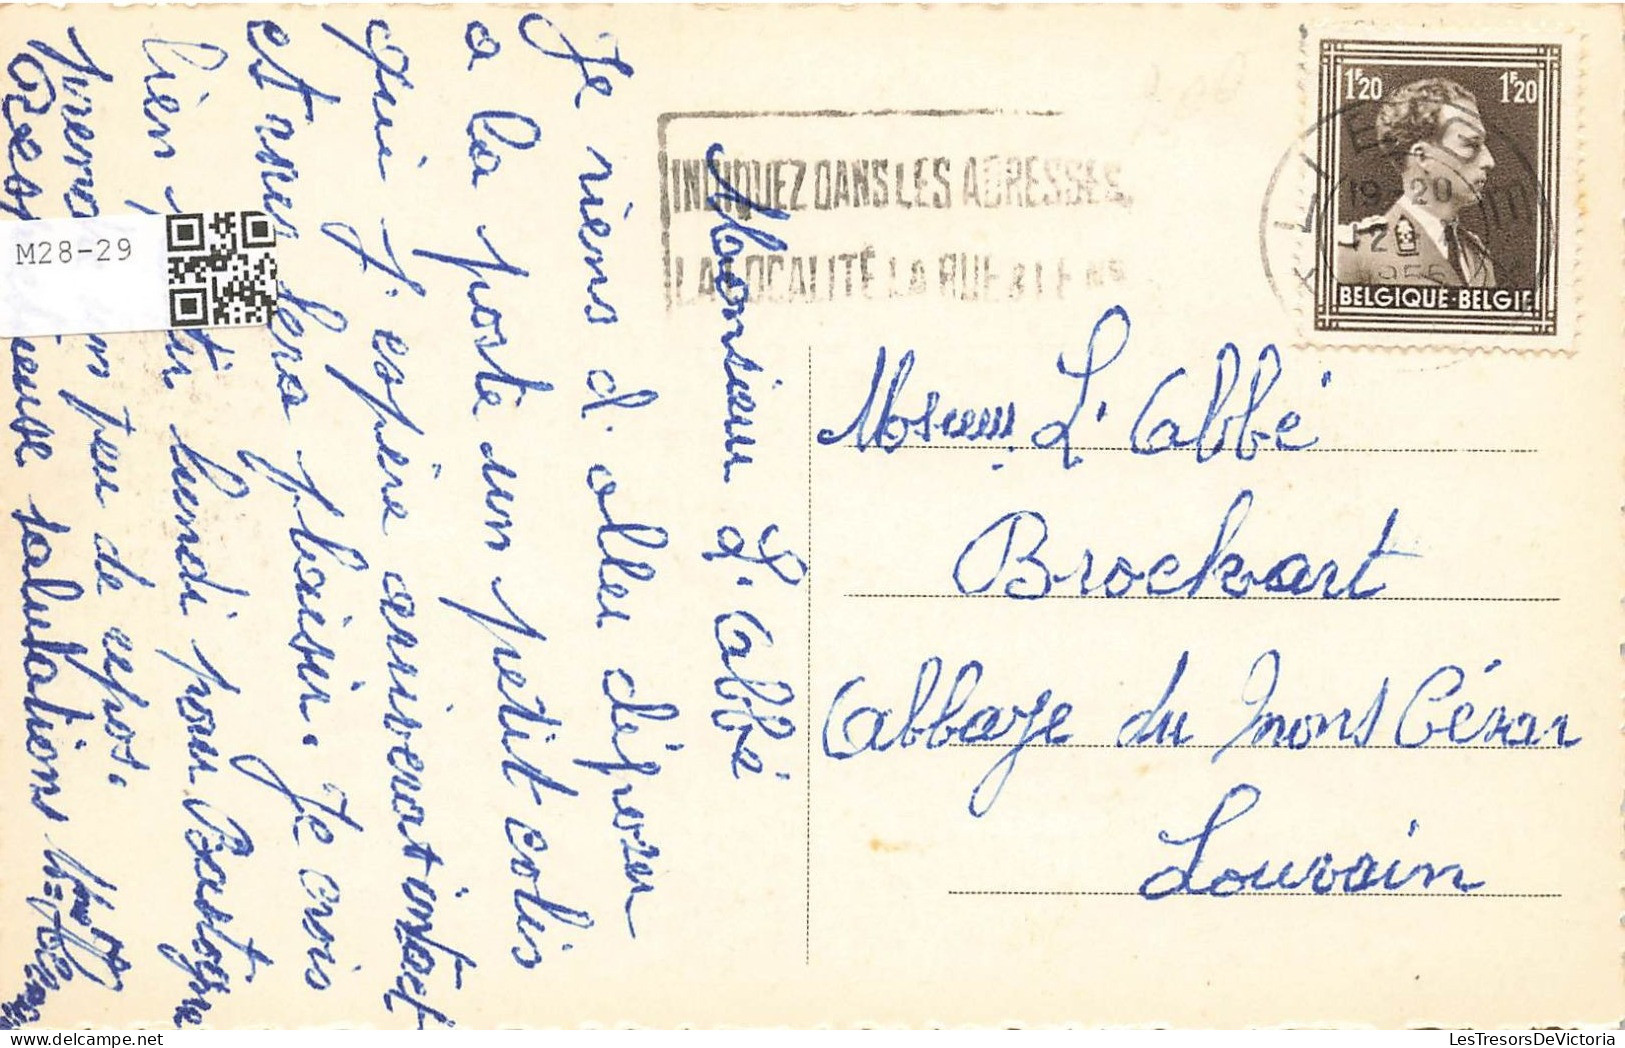 Monsieur L'abbé
Je viens d'aller déposer
a la poste un petit colis
qui j'espère arriverat intact
et vous fera plaisir. Je crois
bien lundi pour Bastogne
prendre un peu de repos.
Respectueuse salutations
M28-29
INDIQUEZ DANS LES ADRESSES
LA LOCALITÉ LA RUE & LE No
1F20 1F20
LIEGE
19-20
1956
BELGIQUE-BELGIE
Mosieur L'abbé
Brockart
abbaye du mont César
Louvain
LesTresorsDeVictoria